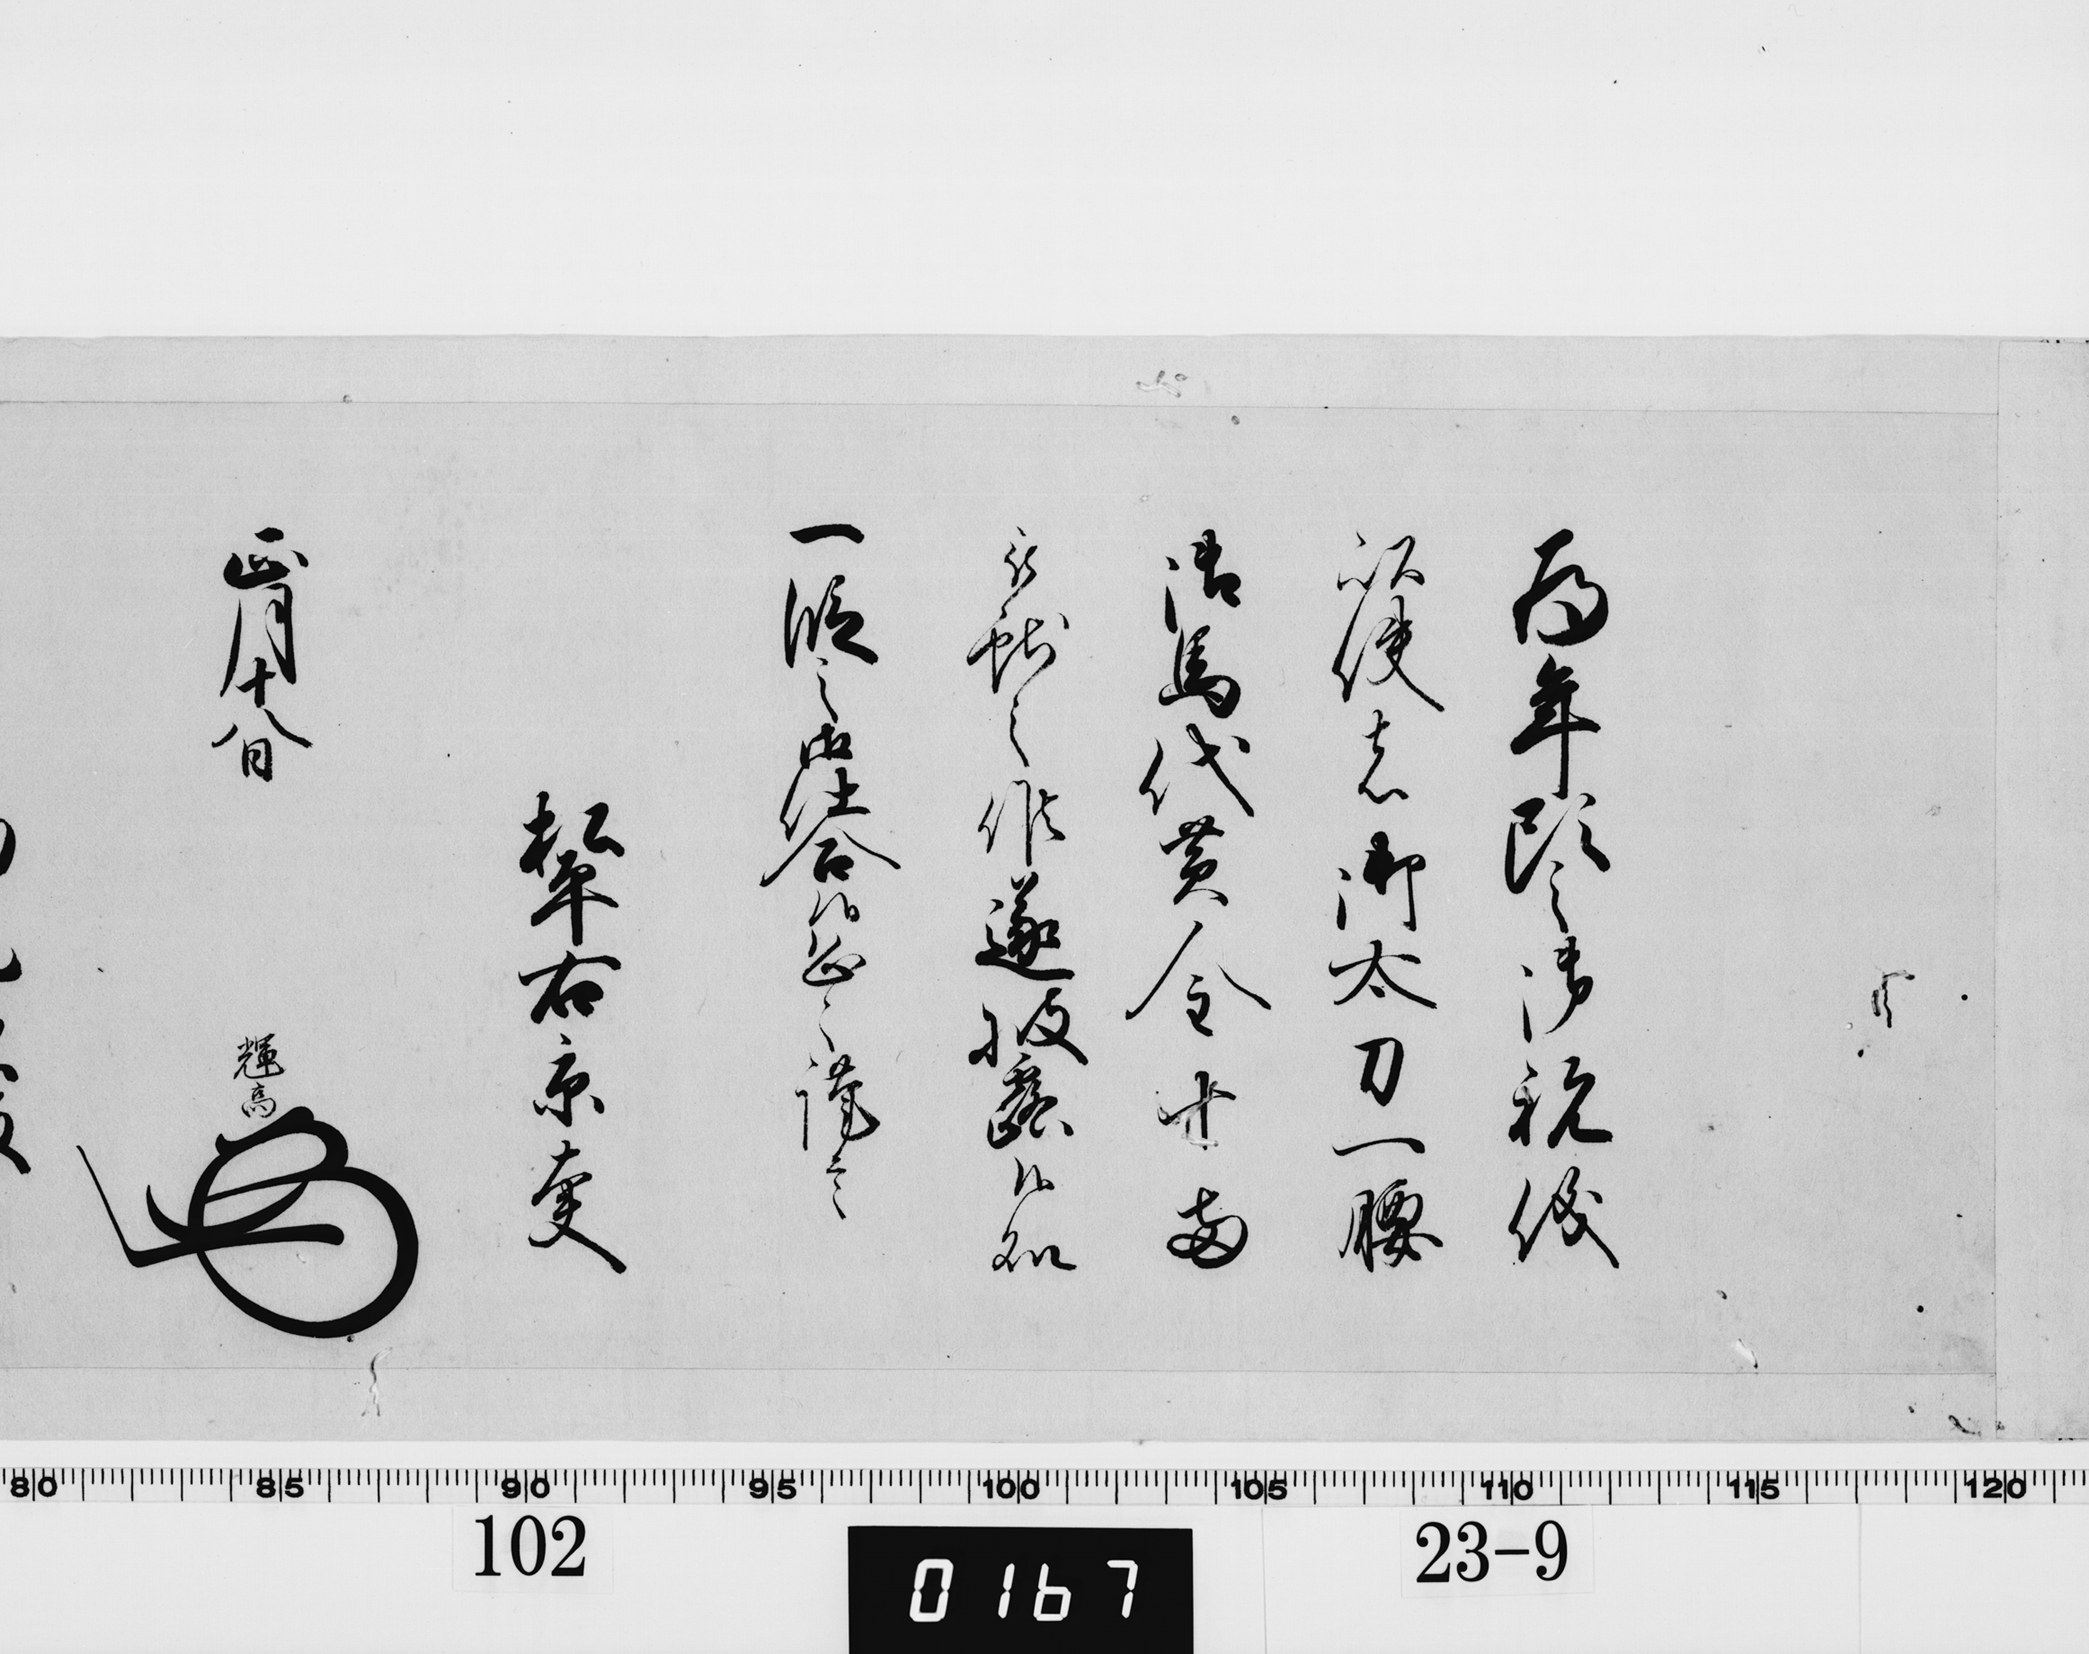 為年頭之御祝儀
以使者御太刀一腰
御馬代黄金十両
被献之候遂披露候処
一段之御仕合候恐々謹言
松平右京大夫
正月十八日
輝高
80 85 90 95 100 105 110 115 120
102
0167
23-9